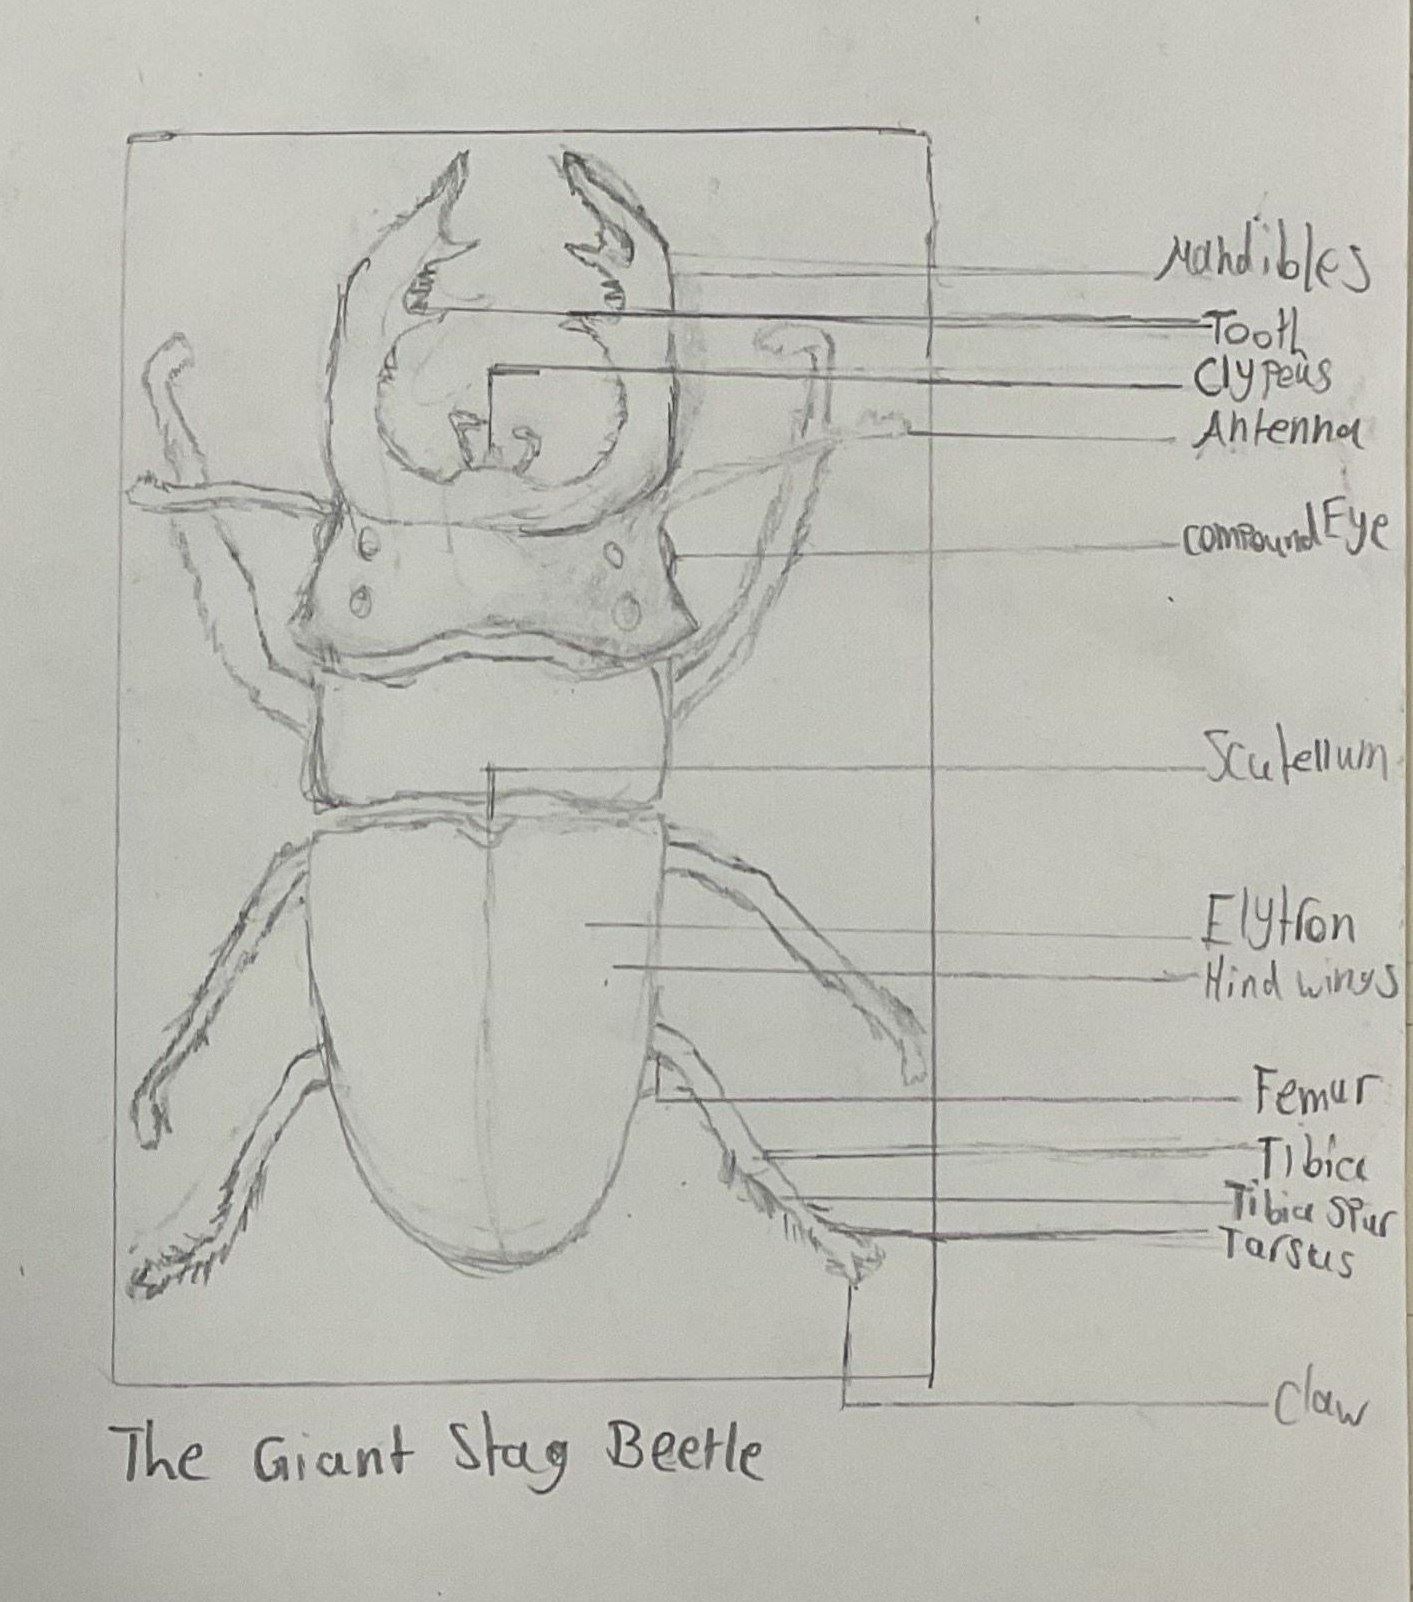 Mandibles
Tooth
Clypeus
Antenna
compound Eye
Scutellum
Elytron
Hind wings
Femur
Tibia
Tibia Spur
Tarsus
Claw
The Giant Stag Beetle